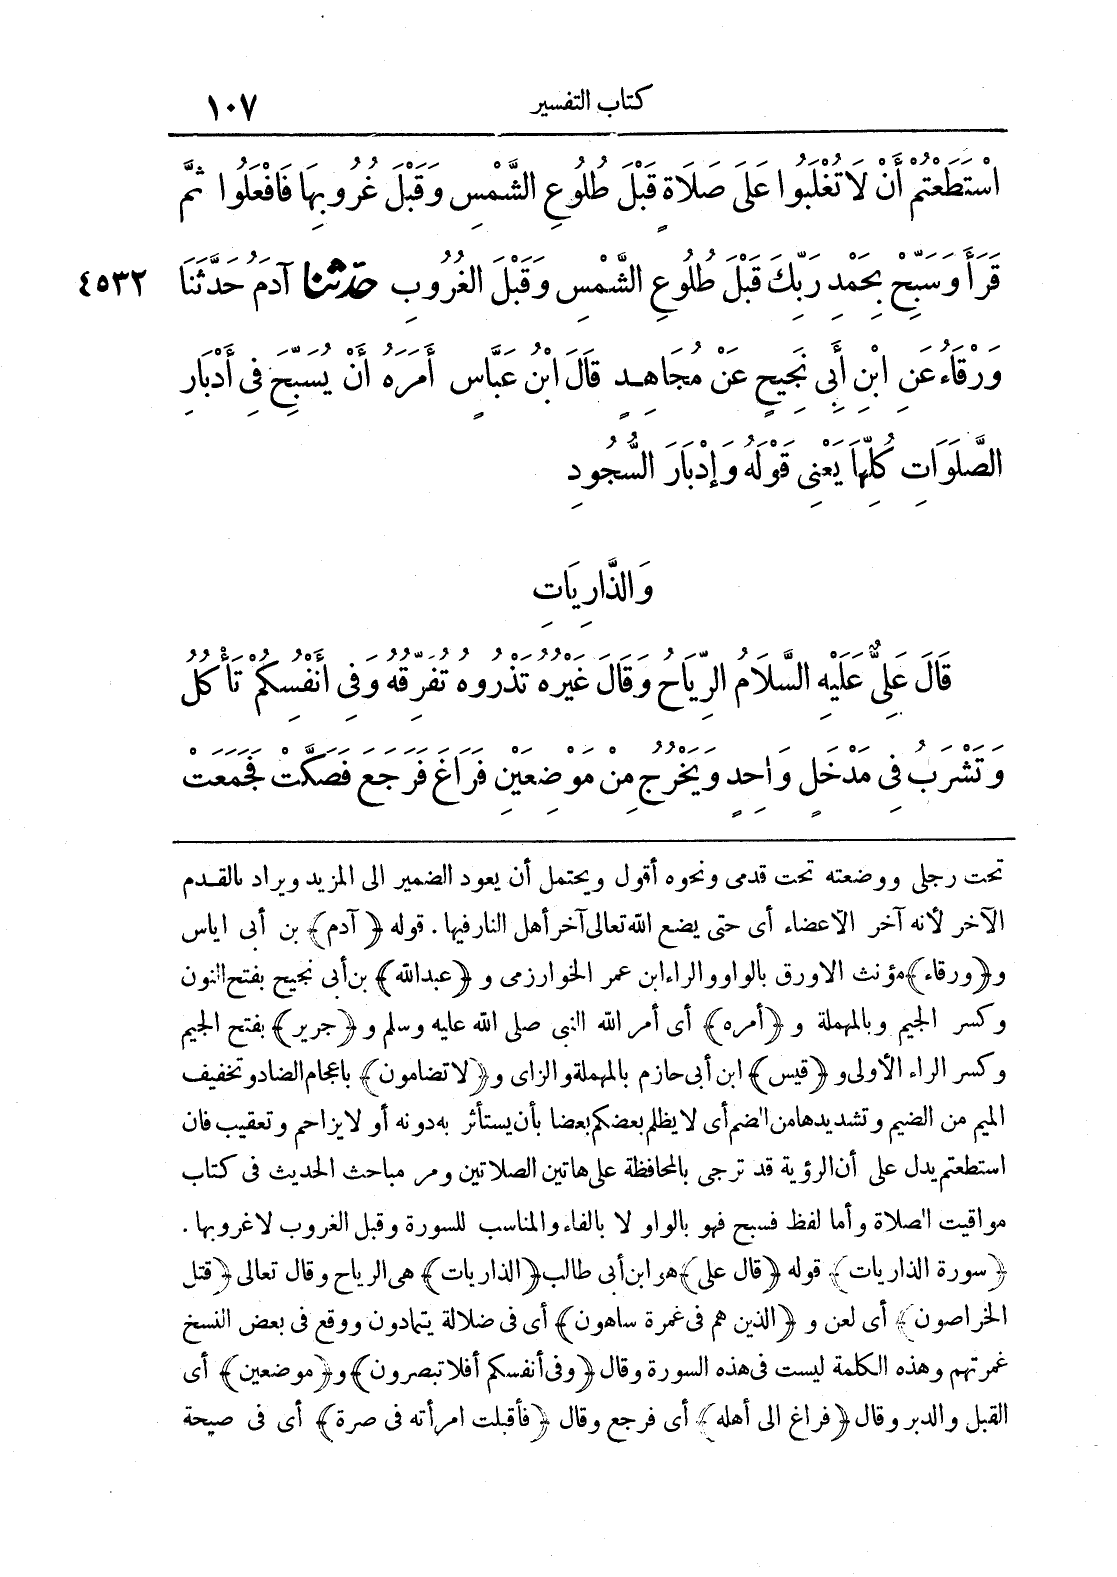 كتاب التفسير ١٠٧
اسْتَطَعْتُمْ أَنْ لَا تُغْلَبُوا عَلَى صَلَاةٍ قَبْلَ طُلُوعِ الشَّمْسِ وَقَبْلَ غُرُوبِهَا فَافْعَلُوا ثُمَّ
قَرَأَ وَسَبِّحْ بِحَمْدِ رَبِّكَ قَبْلَ طُلُوعِ الشَّمْسِ وَقَبْلَ الْغُرُوبِ حَدَّثَنَا آدَمُ حَدَّثَنَا ٤٥٣٢
وَرْقَاءُ عَنِ ابْنِ أَبِي نَجِيحٍ عَنْ مُجَاهِدٍ قَالَ ابْنُ عَبَّاسٍ أَمَرَهُ أَنْ يُسَبِّحَ فِي أَدْبَارِ
الصَّلَوَاتِ كُلِّهَا يَعْنِي قَوْلَهُ وَإِدْبَارَ السُّجُودِ
وَالذَّارِيَاتِ
قَالَ عَلِيٌّ عَلَيْهِ السَّلَامُ الرِّيَاحُ وَقَالَ غَيْرُهُ تَذْرُوهُ تُفَرِّقُهُ وَفِي أَنْفُسِكُمْ تَأْكُلُ
وَتَشْرَبُ فِي مَدْخَلٍ وَاحِدٍ وَيَخْرُجُ مِنْ مَوْضِعَيْنِ فَرَاغَ فَرَجَعَ فَصَكَّتْ فَجَمَعَتْ
تحت رجلى ووضعته تحت قدمى ونحوه أقول ويحتمل أن يعود الضمير الى المزيد ويراد بالقدم
الآخر لأنه آخر الأعضاء أى حتى يضع الله تعالى آخر أهل النار فيها . قوله ﴿آدم﴾ بن أبى اياس
و﴿ورقاء﴾ مؤنث الاورق بالواو والراء ابن عمر الخوارزمى و ﴿عبدالله﴾ بن أبى نجيح بفتح النون
وكسر الجيم وبالمهملة و ﴿أمره﴾ أى أمر الله النبى صلى الله عليه وسلم و﴿جرير﴾ بفتح الجيم
وكسر الراء الأولى و ﴿قيس﴾ ابن أبى حازم بالمهملة والزاى و﴿لا تضامون﴾ باعجام الضاد وتخفيف
الميم من الضيم وتشديدها من الضم أى لا يظلم بعضكم بعضا بأن يستأثر به دونه أو لا يزاحم وتعقيب فان
استطعتم يدل على أن الرؤية قد ترجى بالمحافظة على هاتين الصلاتين ومر مباحث الحديث فى كتاب
مواقيت الصلاة وأما لفظ فسبح فهو بالواو لا بالفاء والمناسب للسورة وقبل الغروب لا غروبها .
﴿سورة الذاريات﴾ قوله ﴿قال على﴾ هو ابن أبى طالب ﴿الذاريات﴾ هى الرياح وقال تعالى ﴿قتل
الخراصون﴾ أى لعن و ﴿الذين هم فى غمرة ساهون﴾ أى فى ضلالة يتمادون ووقع فى بعض النسخ
غمرتهم وهذه الكلمة ليست فى هذه السورة وقال ﴿وفى أنفسكم أفلا تبصرون﴾ و﴿موضعين﴾ أى
القبل والدبر وقال ﴿فراغ الى أهله﴾ أى فرجع وقال ﴿فأقبلت امرأته فى صرة﴾ أى فى صيحة